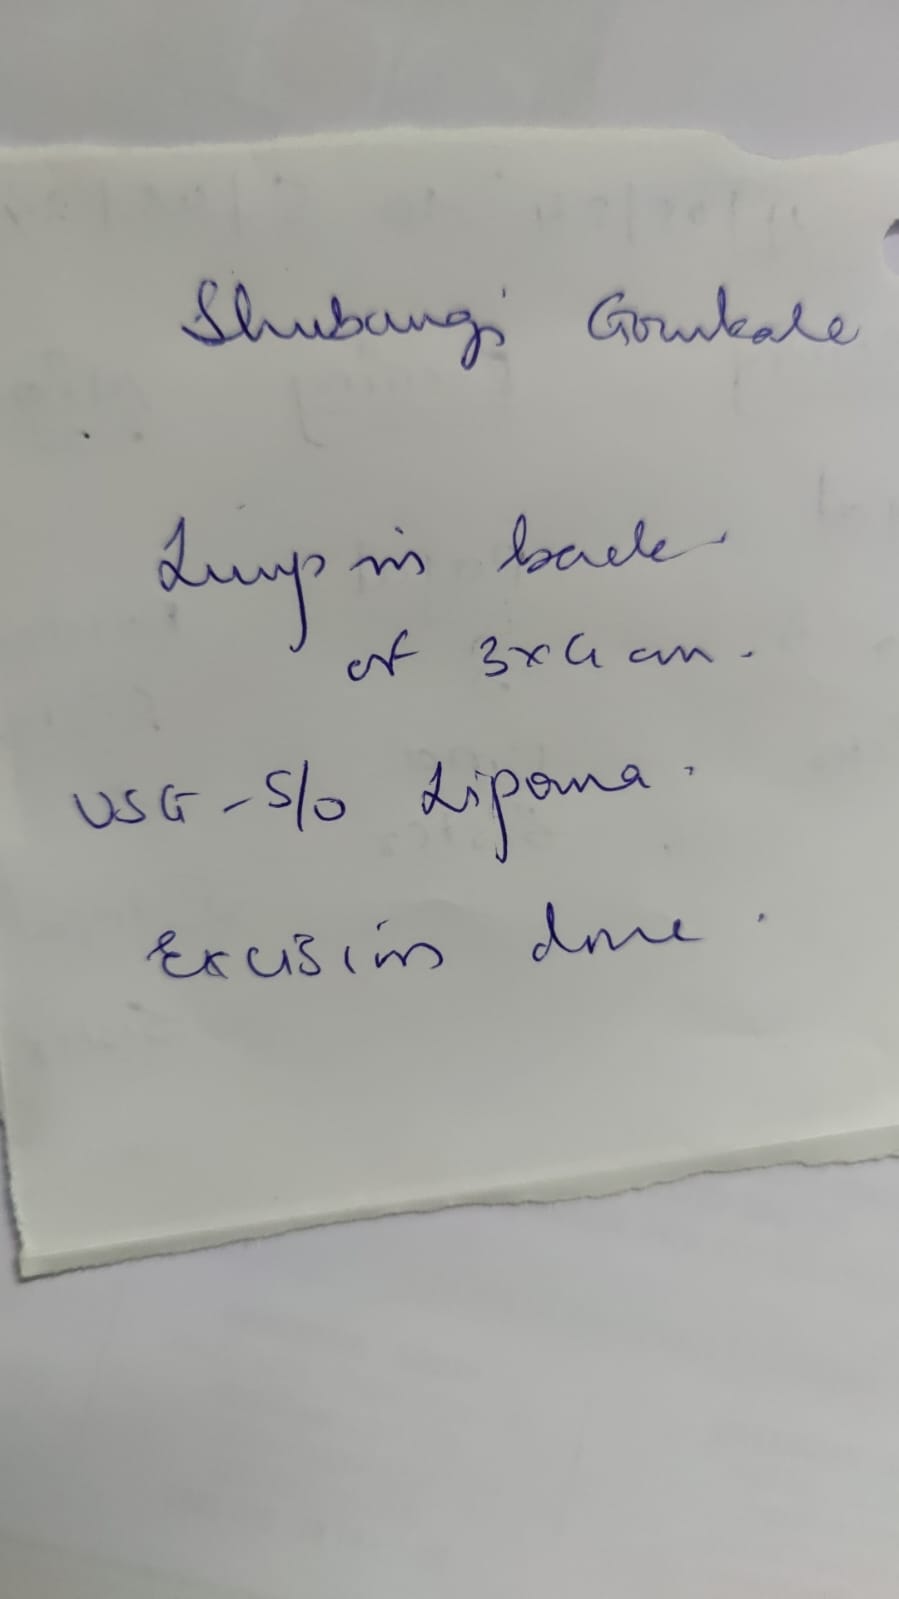 Shubangi Gowkale
Lump in back
of 3x4 cm.
USG - S/o Lipoma.
Excision done.